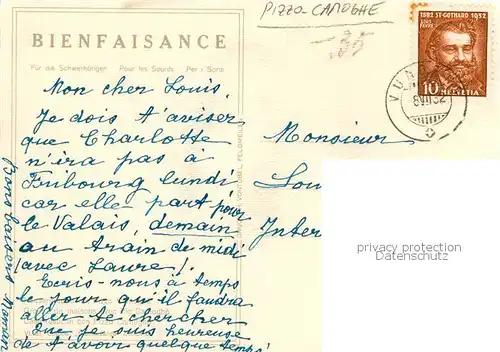 PIZZO CAMOGHE
BIENFAISANCE
Für die Schwerhörigen Pour les Sourds Per i Sordi
Mon cher Louis,
Je dois t'aviser
que Charlotte
n'ira pas à
Fribourg lundi
car elle part pour
le Valais, demain
au train de midi
(avec Laure)!
Ecris-nous à temps
le jour qu'il faudra
aller te chercher
Que je suis heureuse
de t'avoir quelque temps!
Bons baisers Maman
1882 ST-GOTHARD 1932
LOUIS FAVRE
10 HELVETIA
Monsieur
Lou
Inter
privacy protection
Datenschutz